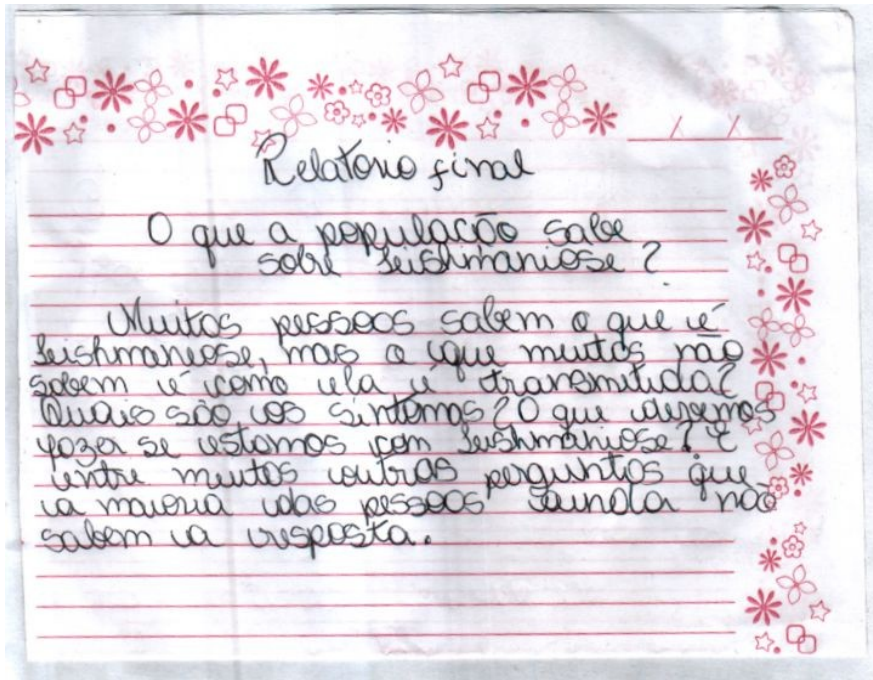 Relatorio final
O que a população sabe
sobre Leishmaniose?
Muitas pessoas sabem o que é
Leishmaniose, mas o que muitas não
sabem é como ela é transmitida?
Quais são os sintomas? O que devemos
fazer se estamos com Leishmaniose? E
entre muitas outras perguntas que
a maioria das pessoas ainda não
sabem a resposta.